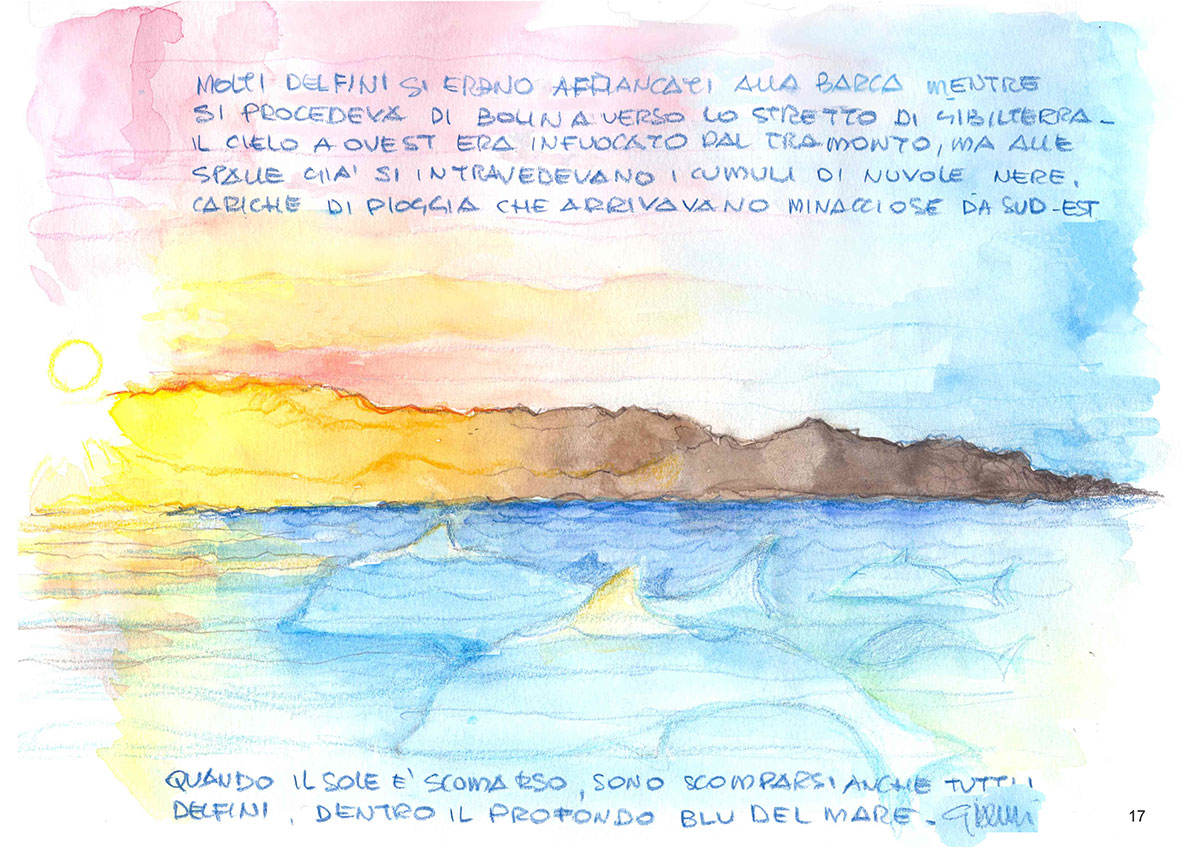 MOLTI DELFINI SI ERANO AFFIANCATI ALLA BARCA MENTRE
SI PROCEDEVA DI BOLINA VERSO LO STRETTO DI GIBILTERRA -
IL CIELO A OVEST ERA INFUOCATO DAL TRAMONTO, MA ALLE
SPALLE GIA' SI INTRAVEDEVANO I CUMULI DI NUVOLE NERE,
CARICHE DI PIOGGIA CHE ARRIVAVANO MINACCIOSE DA SUD-EST
QUANDO IL SOLE E' SCOMPARSO, SONO SCOMPARSI ANCHE TUTTI I
DELFINI, DENTRO IL PROFONDO BLU DEL MARE -
17